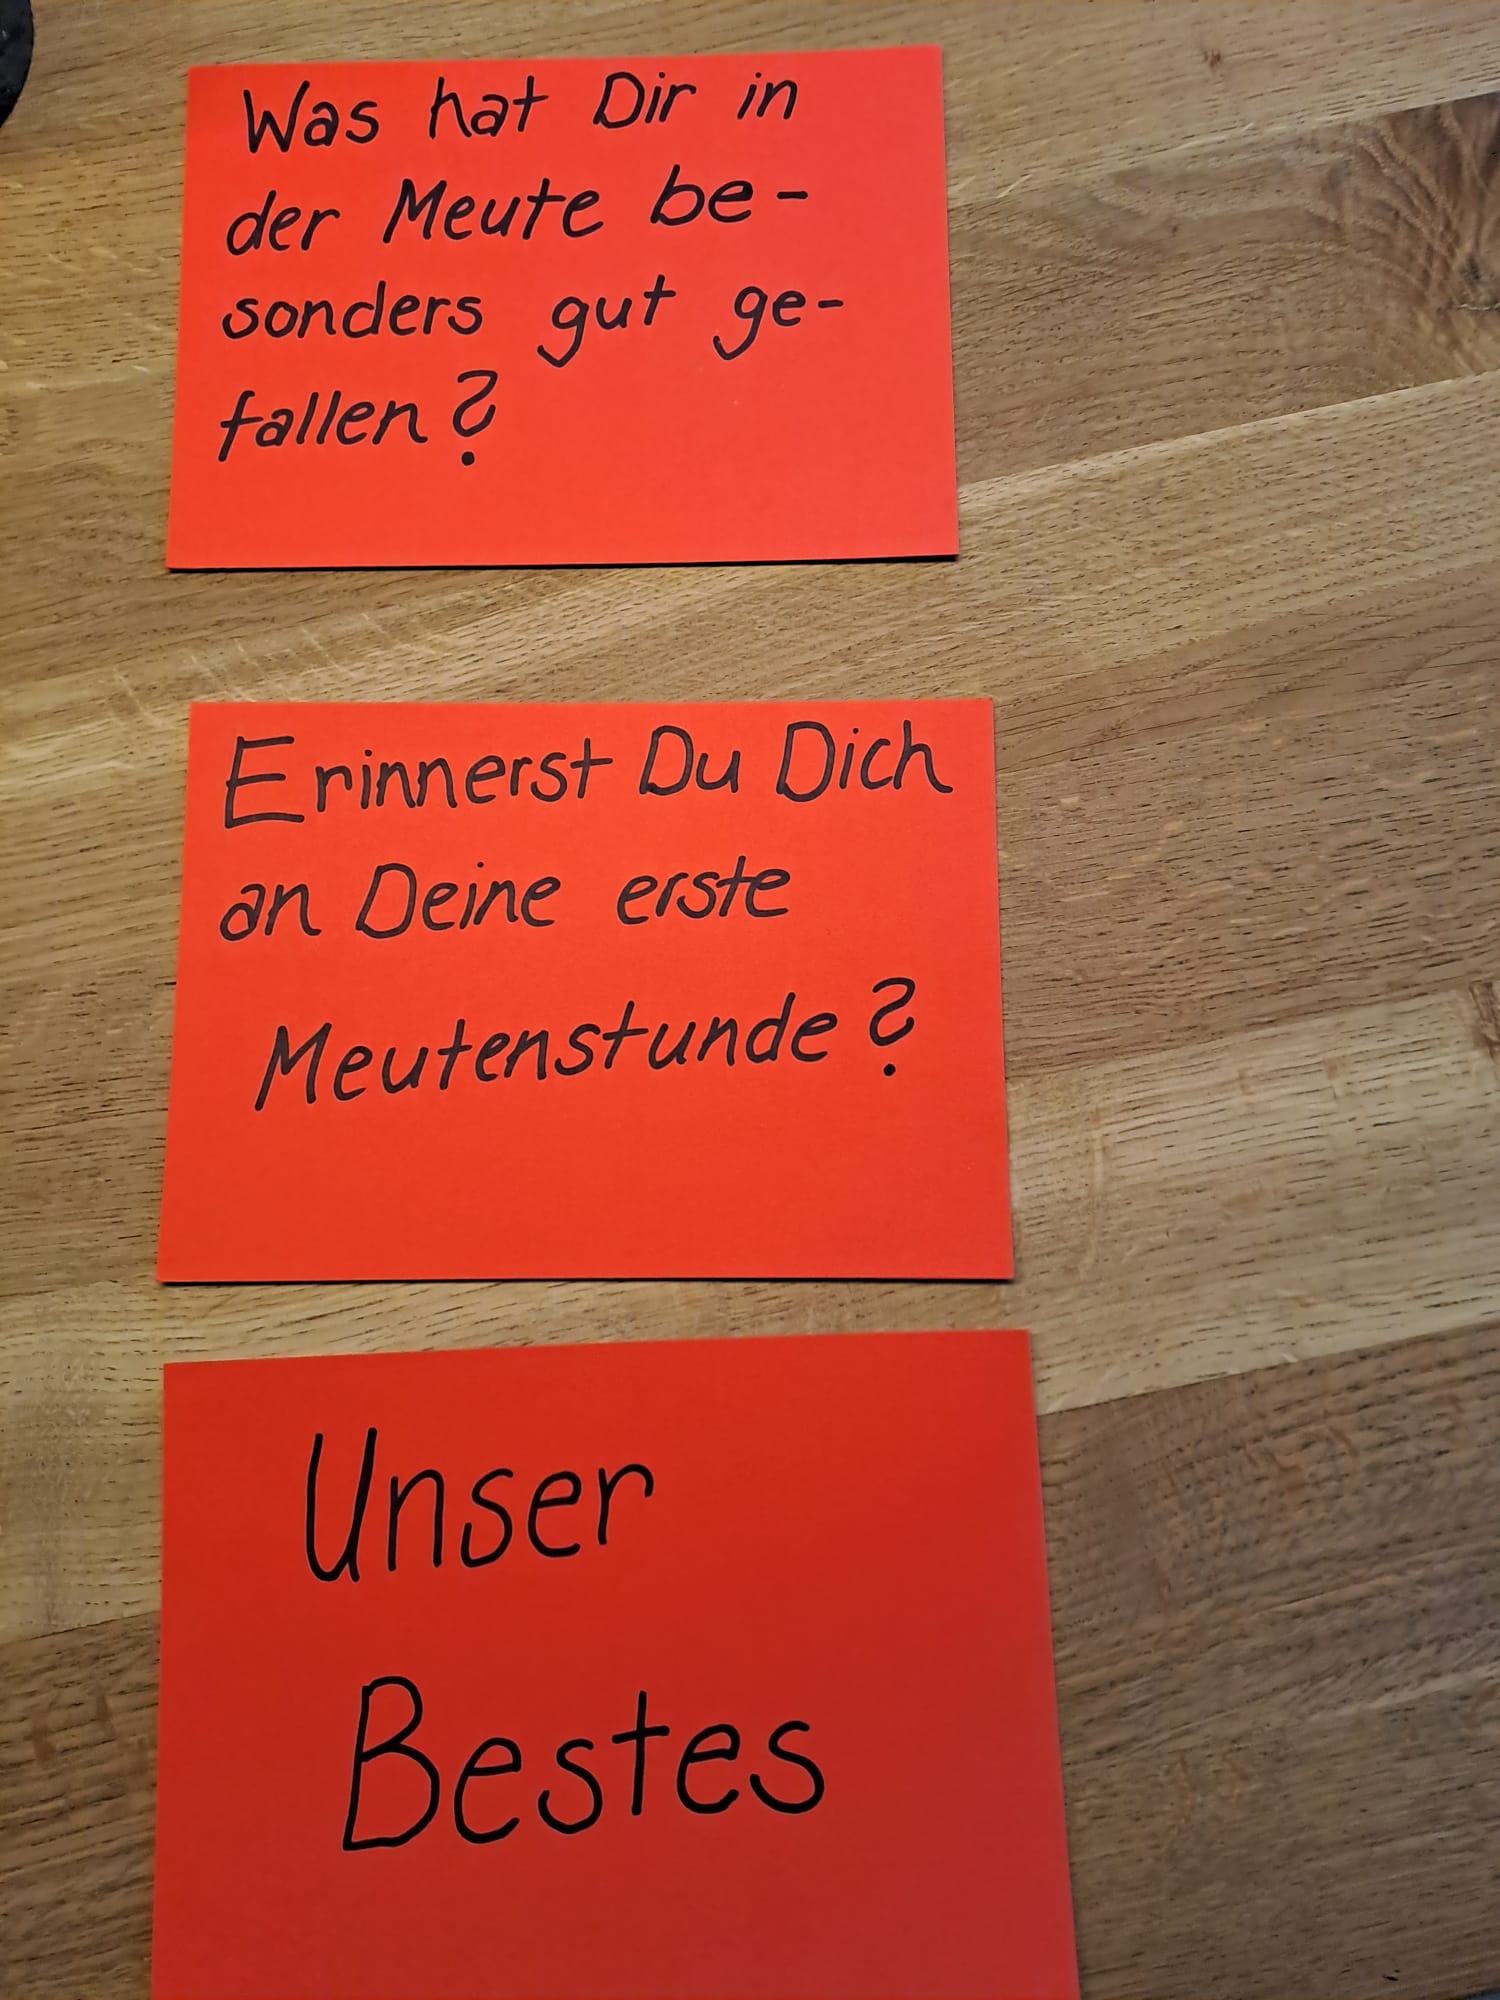 Was hat Dir in
der Meute be-
sonders gut ge-
fallen?
Erinnerst Du Dich
an Deine erste
Meutenstunde?
Unser
Bestes